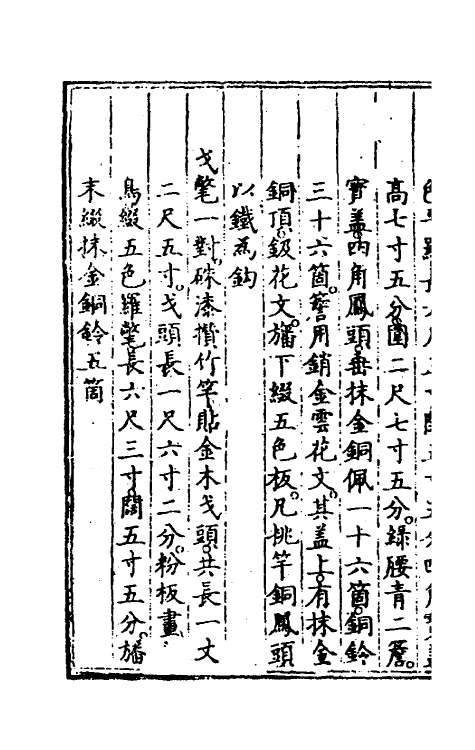 高七寸五分圍二尺七寸五分綠腰青二簷
寶盖四角鳳頭垂抹金銅佩一十六箇銅鈴
三十六箇簷用銷金雲花文其盖上有抹金
銅頂鈒花文旛下綴五色板凡挑竿銅鳳頭
以鐵為鈎
戈氅一對硃漆攢竹竿貼金木戈頭共長一丈
二尺五寸戈頭長一尺六寸二分粉板畫
鳥綴五色羅氅長六尺三寸闊五寸五分旛
末綴抹金銅鈴五箇